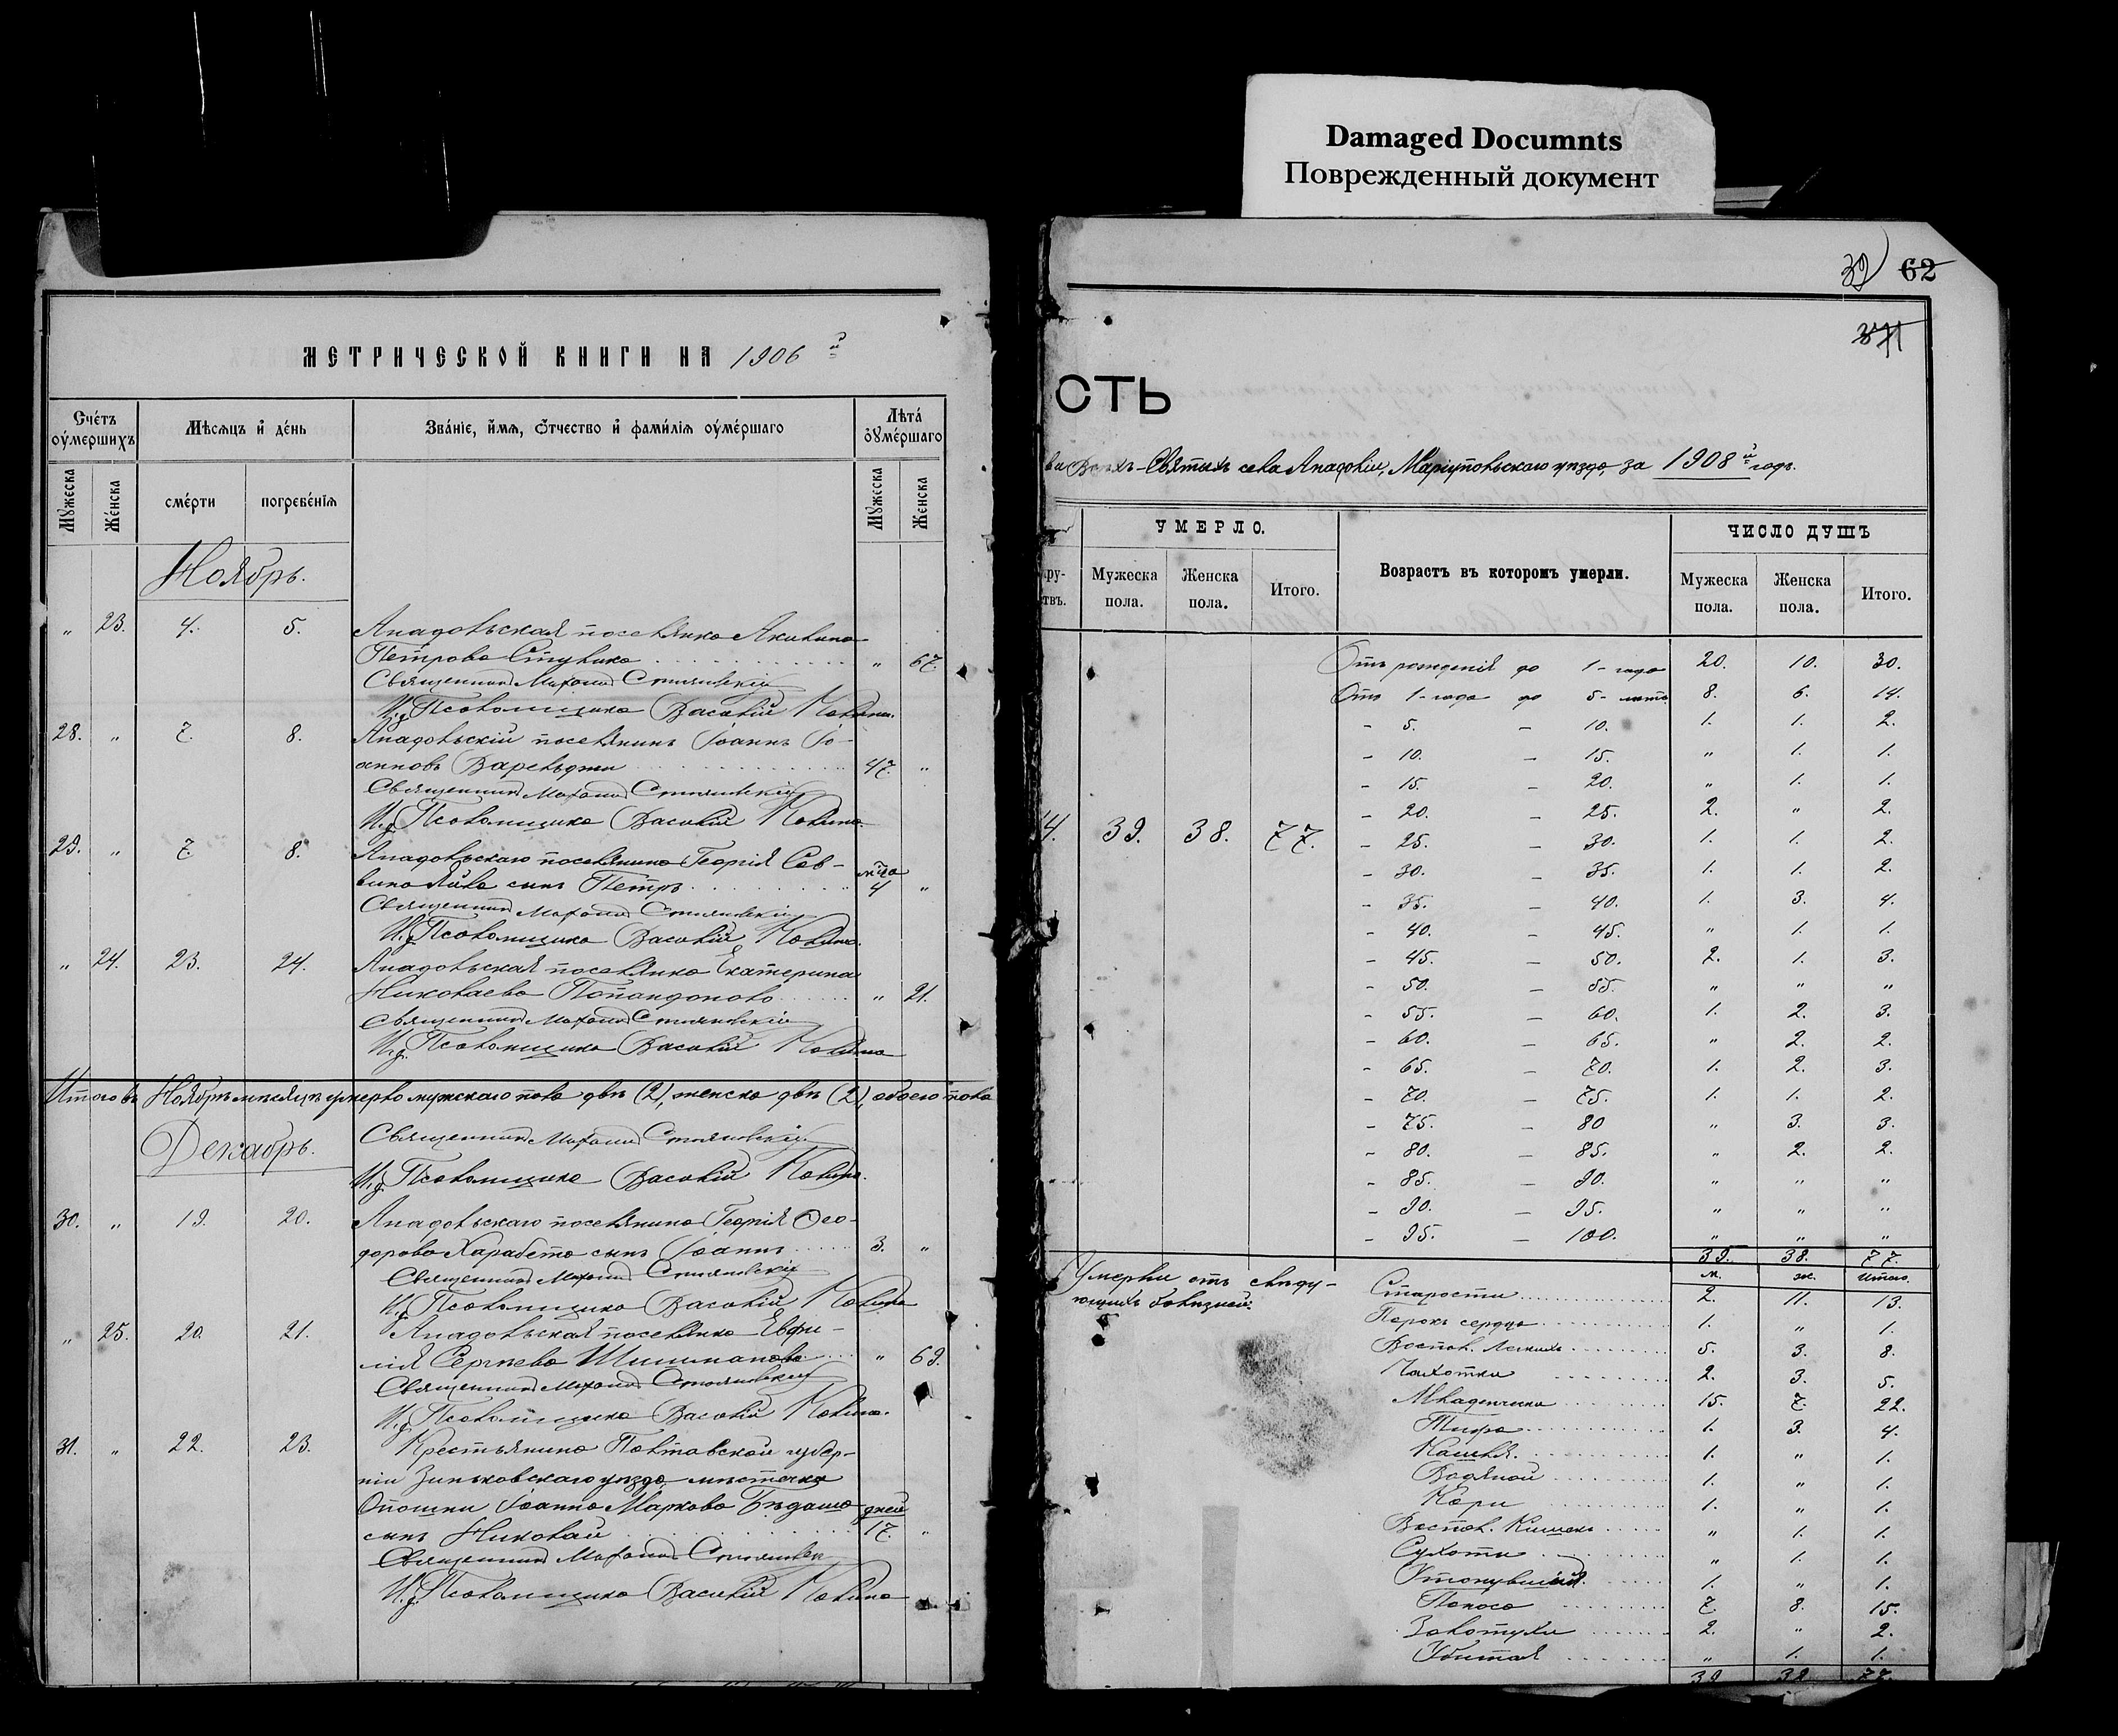 Damaged Documnts
Поврежденный документ
МЕТРИЧЕСКОЙ КНИГИ НА 1906 й
Счéтъ оумéршихъ
Мѣсяцъ и дéнь
Звáнiе, имя, óтчество и фамилiя оумéршаго
Лѣтá оумéршаго
Мужеска
Женска
смéрти
погребéнiя
Мужеска
Женска
Ноябрь.
„ 23. 4. 5. Анадольская поселянка Акилина
Петрова Стулика „ 67.
Священникъ
И.д. Псаломщика Василій
28. „ 7. 8. Анадольскій поселянинъ Іоаннъ Іо-
анновъ Варельджи 47. „
Священникъ
И.д. Псаломщика Василій
29. „ 7. 8. Анадольскаго поселянина Георгія Сав-
вина сынъ Петръ 4 „
Священникъ
И.д. Псаломщика Василій
„ 24. 23. 24. Анадольская поселянка Екатерина
Николаева Попандопова „ 21.
Священникъ
И.д. Псаломщика Василій
Итого въ Ноябрѣ мѣсяцѣ умерло мужскаго пола двѣ (2), женска двѣ (2), обоего пола
Декабрь.
Священникъ
И.д. Псаломщика Василій
30. „ 19. 20. Анадольскаго поселянина Георгія Ѳео-
дорова Харабета сынъ Іоаннъ 3. „
Священникъ
И.д. Псаломщика Василій
„ 25. 20. 21. Анадольская поселянка Евфи-
мія Сергѣева Шишманова „ 69.
Священникъ
И.д. Псаломщика Василій
31. „ 22. 23. Крестьянина Полтавской губер-
ніи Зиньковскаго уѣзда, мѣстечка
Опошни Іоанна Маркова дней
сынъ Николай 17. „
Священникъ
И.д. Псаломщика Василій
39 62
371
СТЬ
Всѣхъ-Святыхъ села Анадоліи, Маріупольскаго уѣзда, за 1908 й годъ.
УМЕРЛО.
Возрастъ въ которомъ умерли.
ЧИСЛО ДУШЪ
ру-
твъ.
Мужеска пола.
Женска пола.
Итого.
Мужеска пола.
Женска пола.
Итого.
4. 39. 38. 77.
Отъ рожденія до 1-года 20. 10. 30.
Отъ 1-года до 5-лѣтъ 8. 6. 14.
- 5. - 10. 1. 1. 2.
- 10. - 15. „ 1. 1.
- 15. - 20. „ 1. 1.
- 20. - 25. 2. „ 2.
- 25. - 30. 1. 1. 2.
- 30. - 35. 1. 1. 2.
- 35. - 40. 1. 3. 4.
- 40. - 45. „ 1. 1.
- 45. - 50. 2. 1. 3.
- 50. - 55. „ „ „
- 55. - 60. 1. 2. 3.
- 60. - 65. „ 2. 2.
- 65. - 70. 1. 2. 3.
- 70. - 75. 1. 1. 2.
- 75. - 80 „ 3. 3.
- 80. - 85. „ 2. 2.
- 85. - 90. „ „ „
- 90. - 95. „ „ „
- 95. - 100. „ „ „
39. 38. 77.
Умерли отъ слѣду-
ющихъ болѣзней:
м. ж. итого.
Старости 2. 11. 13.
Порокъ сердца 1. „ 1.
Воспал. легкихъ 5. 3. 8.
Чахотки 2. 3. 5.
Младенческ 15. 7. 22.
Тифа 1. 3. 4.
Кашля. 1. „ 1.
Водяной 1. „ 1.
Кори 1. „ 1.
Воспал. Кишекъ „ 1. 1.
Сухоты „ 1. 1.
1. „ 1.
Поноса 7. 8. 15.
Золотухи 2. „ 2.
Убитая „ 1. 1.
39 38 77.